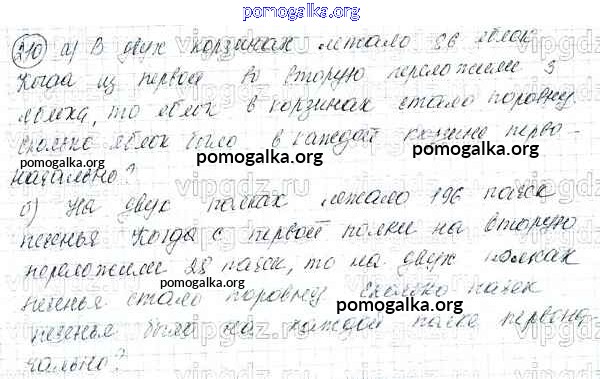 pomogalka.org
210 а) В двух корзинах лежало 86 яблок
Когда из первой во вторую переложили 3
яблока, то яблок в корзинах стало поровну.
сколько яблок было в каждой корзине перво-
pomogalka.org pomogalka.org pomogalka.org
начально?
б) На двух полках лежало 196 пачек
печенья Когда с первой полки на вторую
переложили 28 пачек, то на двух полках
печенья стало поровну сколько пачек
pomogalka.org pomogalka.org
печенья было на каждой первона
чально?
pomogalka.org